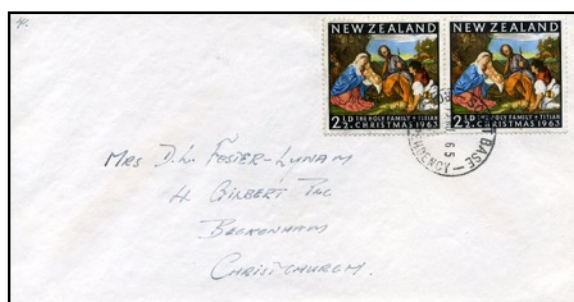 NEW ZEALAND
NEW ZEALAND
2½D THE HOLY FAMILY • TITIAN
CHRISTMAS 1963
2½D THE HOLY FAMILY • TITIAN
CHRISTMAS 1963
BASE —
65
Mrs D.L. FOSTER-LYNAM
4 GILBERT
BECKENHAM
CHRISTCHURCH.